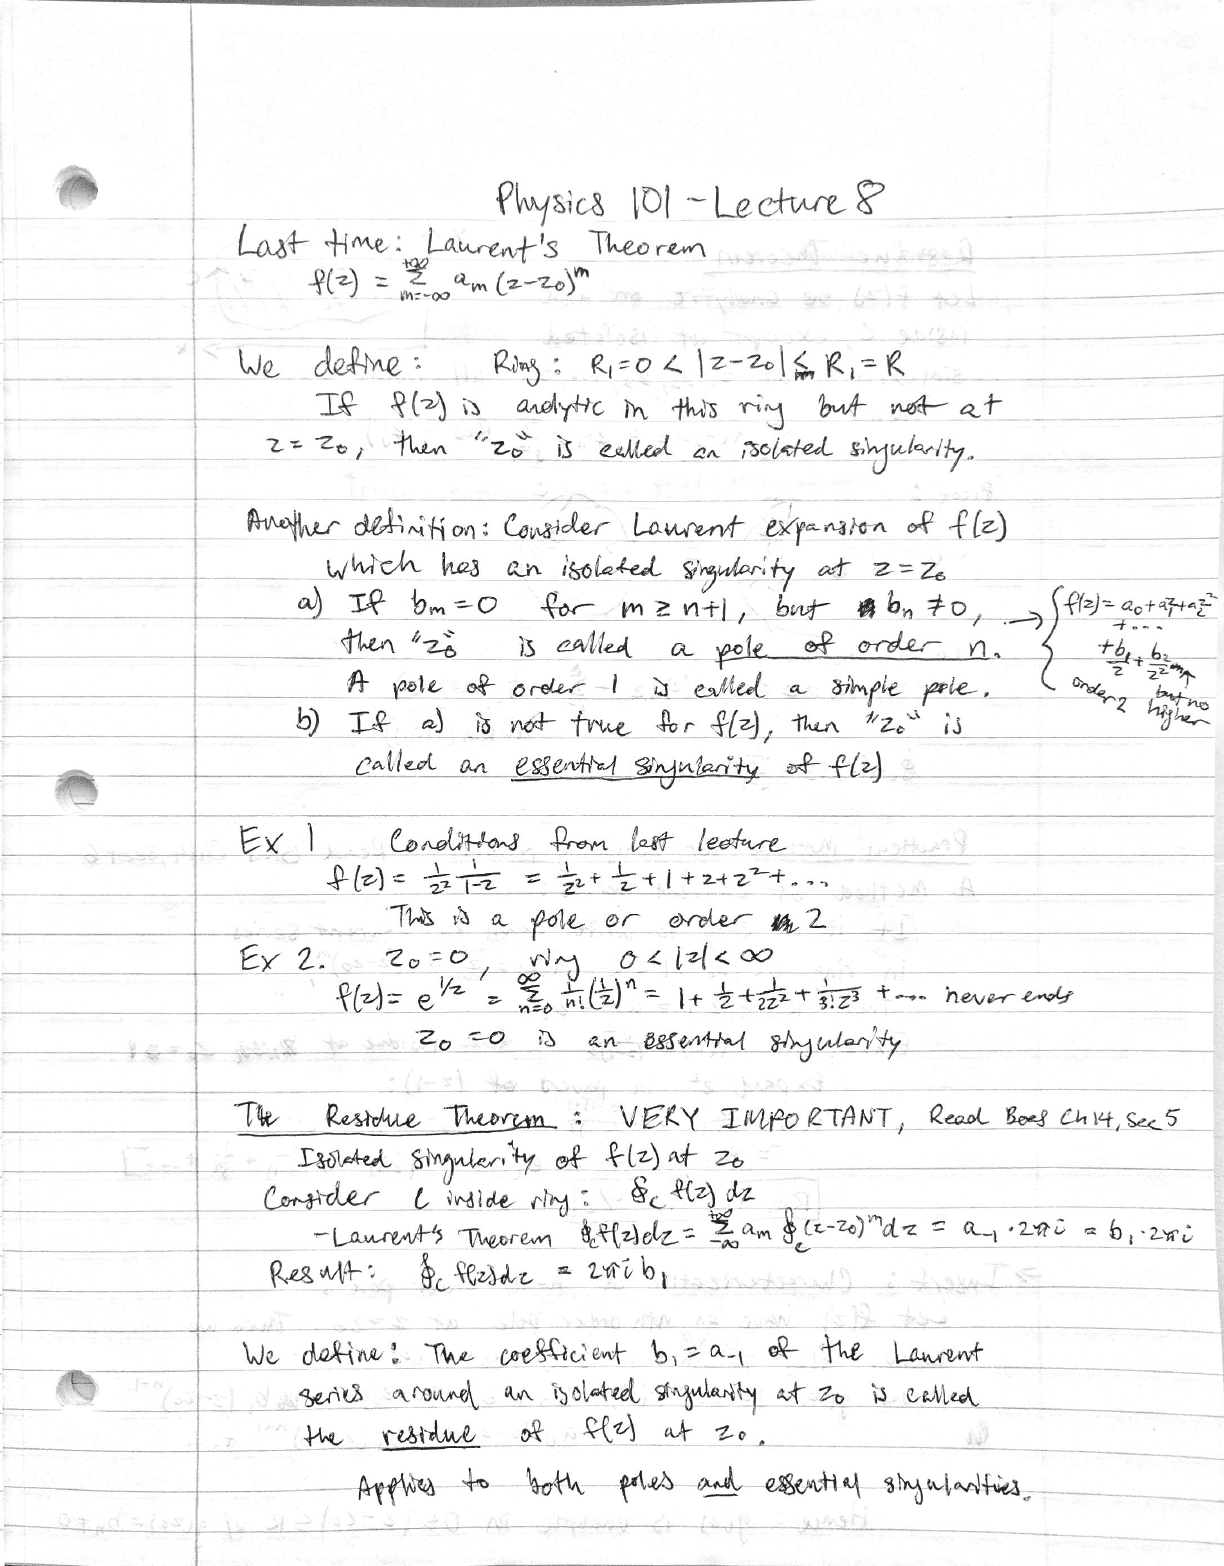 Physics 101 - Lecture 8
Last time: Laurent's Theorem
f(z) = Σ_{m=-∞}^{+∞} a_m (z-z₀)^m
We define: Ring: R₁=0 < |z-z₀| ≤ R₁=R
If f(z) is analytic in this ring but not at
z=z₀, then "z₀" is called an isolated singularity.
Another definition: Consider Laurent expansion of f(z)
which has an isolated singularity at z=z₀
a) If b_m=0 for m≥n+1, but b_n≠0, → { f(z)=a₀+a₁z+a₂z²
+....
then "z₀" is called a pole of order n. +b₁/z + b₂/z²
A pole of order 1 is called a simple pole. order 2 but no higher
b) If a) is not true for f(z), then "z₀" is
called an essential singularity of f(z)
Ex 1 Conditions from last lecture
f(z) = 1/z² 1/(1-z) = 1/z² + 1/z + 1 + z + z² + ...
This is a pole or order 2
Ex 2. z₀=0, ring 0<|z|<∞
f(z) = e^{1/z} = Σ_{n=0}^{∞} 1/n! (1/z)^n = 1 + 1/z + 1/2z² + 1/3!z³ + .... never ends
z₀=0 is an essential singularity
The Residue Theorem: VERY IMPORTANT, Read Boas Ch 14, Sec 5
Isolated singularity of f(z) at z₀
Consider C inside ring: ∮_C f(z) dz
- Laurent's Theorem ∮_C f(z)dz = Σ_{-∞}^{+∞} a_m ∮_C (z-z₀)^m dz = a₋₁ · 2πi = b₁ · 2πi
Result: ∮_C f(z)dz = 2πi b₁
We define: The coefficient b₁=a₋₁ of the Laurent
series around an isolated singularity at z₀ is called
the residue of f(z) at z₀.
Applies to both poles and essential singularities.